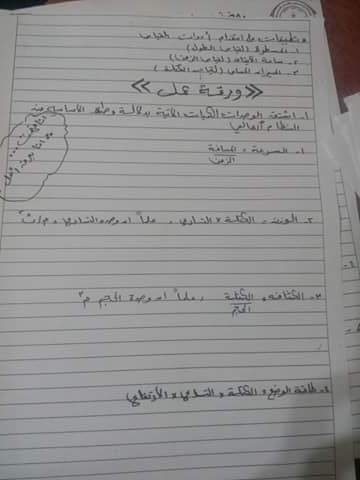 * تطبيقات على استخدام أدوات القياس
١- المسطرة (لقياس الطول)
٢- ساعة الإيقاف (لقياس الزمن)
٣- الميزان الحساس (لقياس الكتلة)
« ورقة عمل »
١- اشتق الوحدات الكميات الآتية بدلالة وحداتها الأساسية في
النظام العالمي
١- السرعة = المسافة
الزمن
٢- الوزن = الكتلة × التسارع ، علماً أن وحدة التسارع = م/ث٢
٣- الكثافة = الكتلة ، علماً أن وحدة الحجم م٣
الحجم
٤- طاقة الوضع = الكتلة × التسارع × الارتفاع